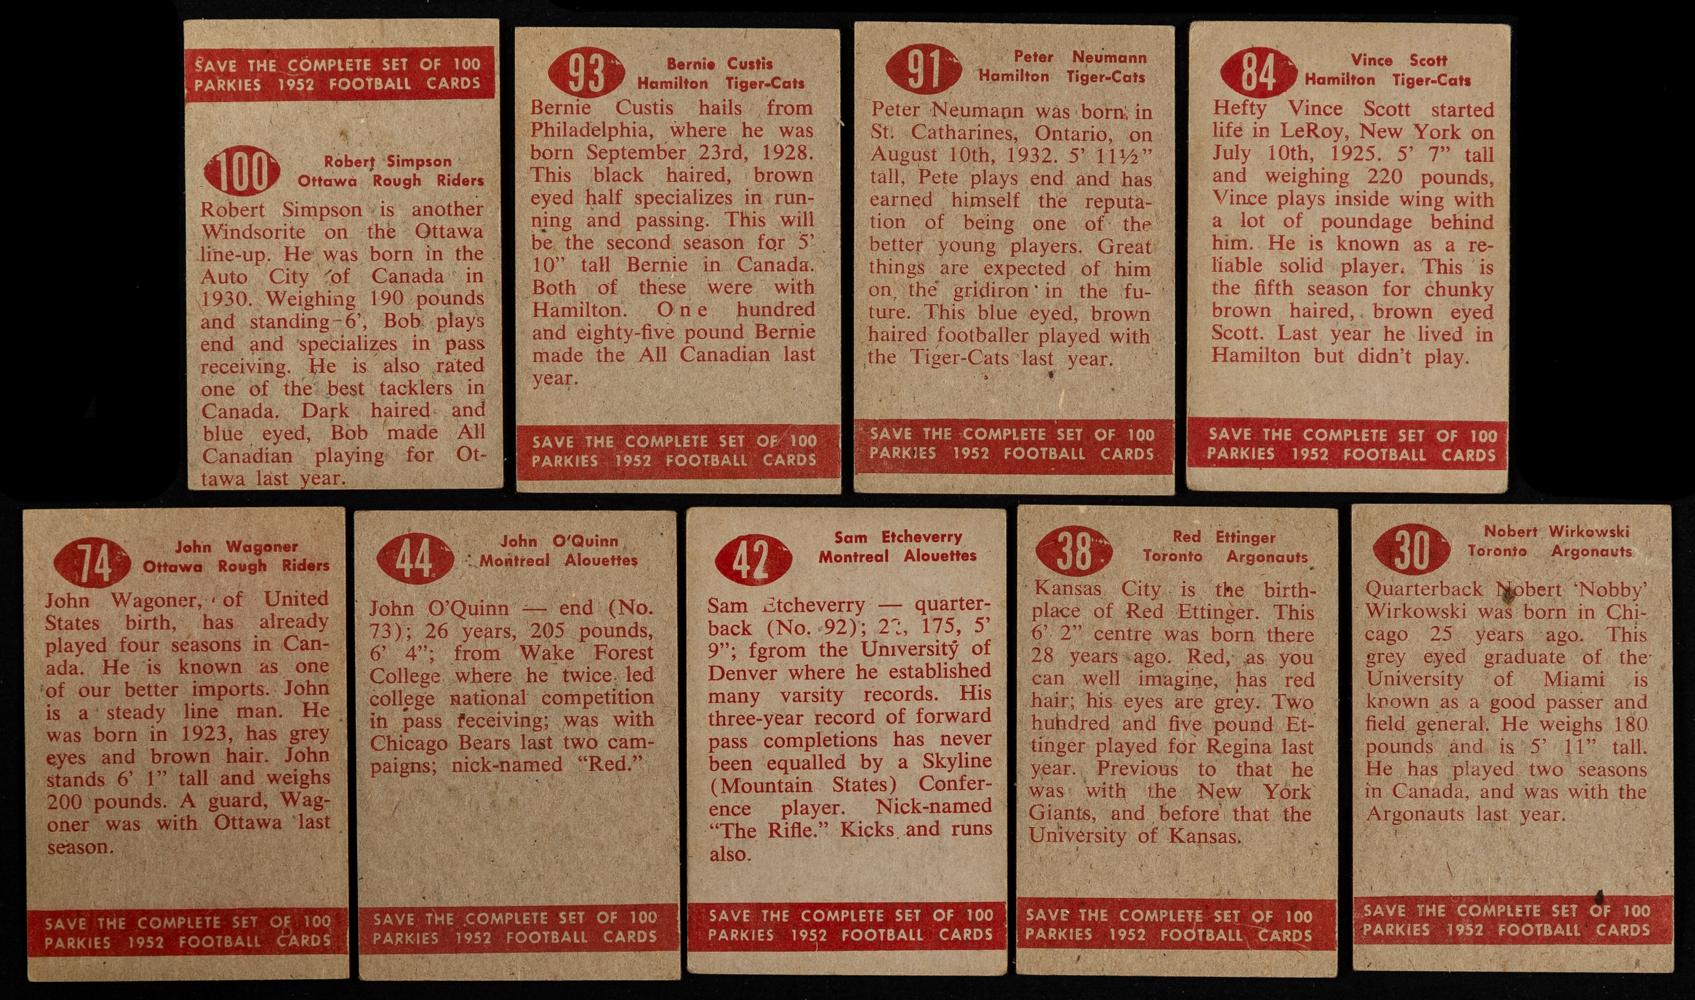 SAVE THE COMPLETE SET OF 100
PARKIES 1952 FOOTBALL CARDS
100
Robert Simpson
Ottawa Rough Riders
Robert Simpson is another
Windsorite on the Ottawa
line-up. He was born in the
Auto City of Canada in
1930. Weighing 190 pounds
and standing 6', Bob plays
end and specializes in pass
receiving. He is also rated
one of the best tacklers in
Canada. Dark haired and
blue eyed, Bob made All
Canadian playing for Ot-
tawa last year.
93
Bernie Custis
Hamilton Tiger-Cats
Bernie Custis hails from
Philadelphia, where he was
born September 23rd, 1928.
This black haired, brown
eyed half specializes in run-
ning and passing. This will
be the second season for 5'
10" tall Bernie in Canada.
Both of these were with
Hamilton. One hundred
and eighty-five pound Bernie
made the All Canadian last
year.
SAVE THE COMPLETE SET OF 100
PARKIES 1952 FOOTBALL CARDS
91
Peter Neumann
Hamilton Tiger-Cats
Peter Neumann was born in
St. Catharines, Ontario, on
August 10th, 1932. 5' 11½"
tall, Pete plays end and has
earned himself the reputa-
tion of being one of the
better young players. Great
things are expected of him
on the gridiron in the fu-
ture. This blue eyed, brown
haired footballer played with
the Tiger-Cats last year.
SAVE THE COMPLETE SET OF 100
PARKIES 1952 FOOTBALL CARDS
84
Vince Scott
Hamilton Tiger-Cats
Hefty Vince Scott started
life in LeRoy, New York on
July 10th, 1925. 5' 7" tall
and weighing 220 pounds,
Vince plays inside wing with
a lot of poundage behind
him. He is known as a re-
liable solid player. This is
the fifth season for chunky
brown haired, brown eyed
Scott. Last year he lived in
Hamilton but didn't play.
SAVE THE COMPLETE SET OF 100
PARKIES 1952 FOOTBALL CARDS
74
John Wagoner
Ottawa Rough Riders
John Wagoner, of United
States birth, has already
played four seasons in Can-
ada. He is known as one
of our better imports. John
is a steady line man. He
was born in 1923, has grey
eyes and brown hair. John
stands 6' 1" tall and weighs
200 pounds. A guard, Wag-
oner was with Ottawa last
season.
SAVE THE COMPLETE SET OF 100
PARKIES 1952 FOOTBALL CARDS
44
John O'Quinn
Montreal Alouettes
John O'Quinn — end (No.
73); 26 years, 205 pounds,
6' 4"; from Wake Forest
College where he twice led
college national competition
in pass receiving; was with
Chicago Bears last two cam-
paigns; nick-named "Red."
SAVE THE COMPLETE SET OF 100
PARKIES 1952 FOOTBALL CARDS
42
Sam Etcheverry
Montreal Alouettes
Sam Etcheverry — quarter-
back (No. 92); 175, 5'
9"; fgrom the University of
Denver where he established
many varsity records. His
three-year record of forward
pass completions has never
been equalled by a Skyline
(Mountain States) Confer-
ence player. Nick-named
"The Rifle." Kicks and runs
also.
SAVE THE COMPLETE SET OF 100
PARKIES 1952 FOOTBALL CARDS
38
Red Ettinger
Toronto Argonauts
Kansas City is the birth-
place of Red Ettinger. This
6' 2" centre was born there
28 years ago. Red, as you
can well imagine, has red
hair; his eyes are grey. Two
hundred and five pound Et-
tinger played for Regina last
year. Previous to that he
was with the New York
Giants, and before that the
University of Kansas.
SAVE THE COMPLETE SET OF 100
PARKIES 1952 FOOTBALL CARDS
30
Nobert Wirkowski
Toronto Argonauts
Quarterback Nobert 'Nobby'
Wirkowski was born in Chi-
cago 25 years ago. This
grey eyed graduate of the
University of Miami is
known as a good passer and
field general. He weighs 180
pounds and is 5' 11" tall.
He has played two seasons
in Canada, and was with the
Argonauts last year.
SAVE THE COMPLETE SET OF 100
PARKIES 1952 FOOTBALL CARDS